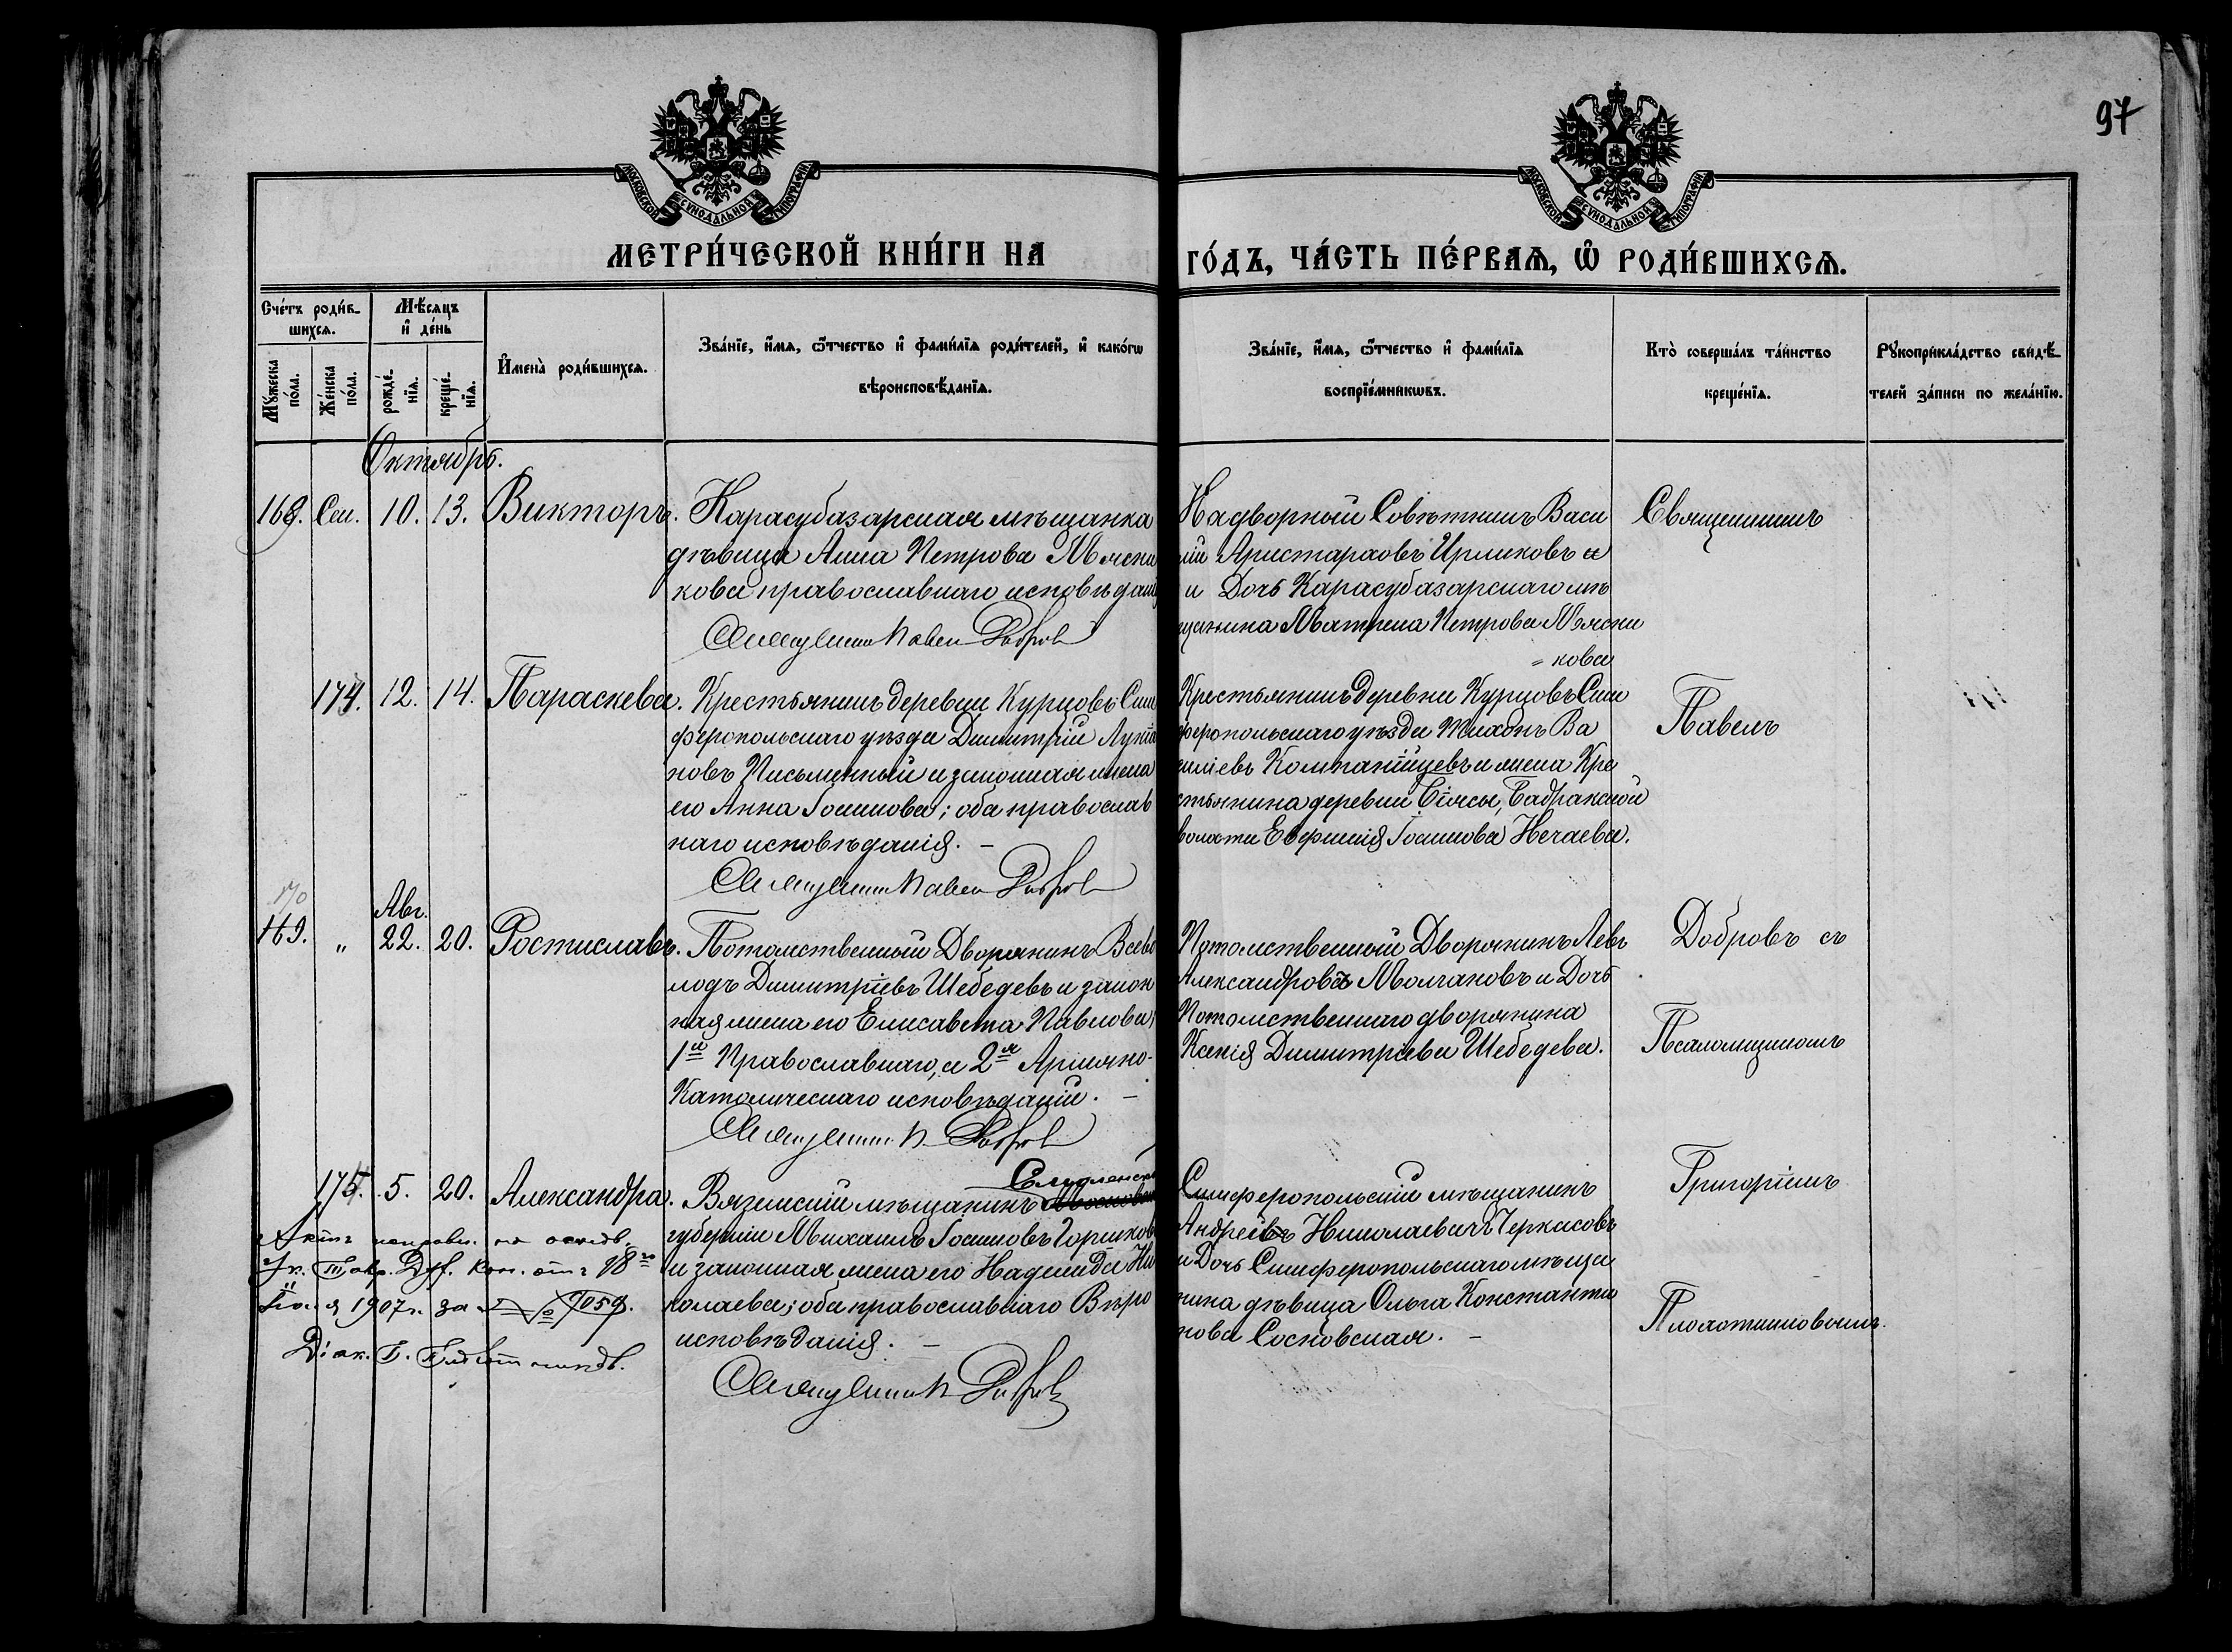 97
МОСКОВСКОЙ СУНОДАЛЬНОЙ ТИПОГРАФІИ
МОСКОВСКОЙ СУНОДАЛЬНОЙ ТИПОГРАФІИ
МЕТРИ́ЧЕСКОЙ КНИ́ГИ НА
ГО́ДЪ, ЧА́СТЬ ПЕ́РВАѦ, Ѡ РОДИ́ВШИХСѦ.
Сче́тъ роди́в-
шихсѧ.
Мѣ́сѧцъ
и҆ де́нь
Му́жеска
по́ла.
Же́нска
по́ла.
рожде́-
нїѧ.
креще́-
нїѧ.
И҆мена̀ роди́вшихсѧ.
Зва́нїе, и҆́мѧ, ѻ҆́тчество и҆ фами́лїѧ роди́телей, и҆ како́гѡ
вѣроисповѣ́данїѧ.
Зва́нїе, и҆́мѧ, ѻ҆́тчество и҆ фами́лїѧ
воспрїе́мникѡвъ.
Кто̀ соверша́лъ та́инство
креще́нїѧ.
Рꙋкоприкла́дство свидѣ́-
телей за́писи по жела́нїю.
Октябрь.
168. Сен. 10. 13. Викторъ.
Карасубазарская мѣщанка
дѣвица Анна Петрова Мясни
кова православнаго исповѣданія
Священникъ Павелъ Добровъ
Надворный Совѣтникъ Васи
лій Аристарховъ Ирликовъ
и Дочь Карасубазарскаго мѣ
щанина Матрена Петрова Мясни
= кова
Священникъ
174. 12. 14. Параскева.
Крестьянинъ деревни Курцовъ Сим
феропольскаго уѣзда Димитрій Лукіа
новъ Письменный и законная жена
его Анна Іоаннова; оба православ
наго исповѣданія. –
Священникъ Павелъ Добровъ
Крестьянинъ деревни Курцовъ Сим
феропольскаго уѣзда Тихонъ Ва
силіевъ Компанійцевъ и жена Кре
стьянина деревни Біясы, Бадракской
волости Евфимія Іоаннова Нечаева.
Павелъ
170
169. „ Авг. 22. 20. Ростиславъ.
Потомственный Дворянинъ Всево
лодъ Димитріевъ Шебедевъ и закон
ная жена его Елисавета Павлова;
1й Православнаго, а 2я Армяно-
Католическаго исповѣданій. –
Священникъ П. Добровъ
Потомственный Дворянинъ Левъ
Александровъ Молчановъ и Дочь
Потомственнаго дворянина
Ксенія Димитріева Шебедева.
Добровъ съ
Псаломщикомъ
175. 5. 20. Александра.
Смоленской
Вяземскій мѣщанинъ Московской
губерніи Михаилъ Іоанновъ Горшковъ
и законная жена его Надежда Ни
колаева; оба православнаго Вѣро
исповѣданія. –
Священникъ П. Добровъ
Симферопольскій мѣщанинъ
Андрей Николаевичъ Черкасовъ
и Дочь Симферопольскаго мѣща
нина дѣвица Ольга Константи
нова Сосновская. –
Григоріемъ
Плохотниковымъ.
Актъ исправл. на основ.
Ук. Тавр. Дух. Кон. отъ 18го
Іюля 1907 г. за № 9059.
Діак.